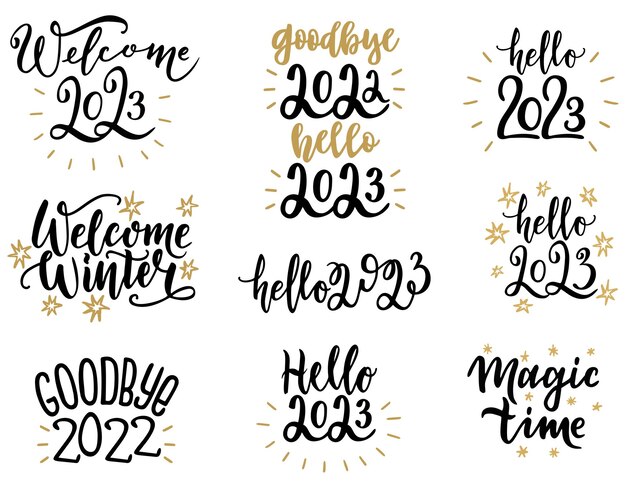 Welcome
2023
goodbye
2022
hello
2023
hello
2023
Welcome
Winter
hello2023
hello
2023
GOODBYE
2022
Hello
2023
Magic
time